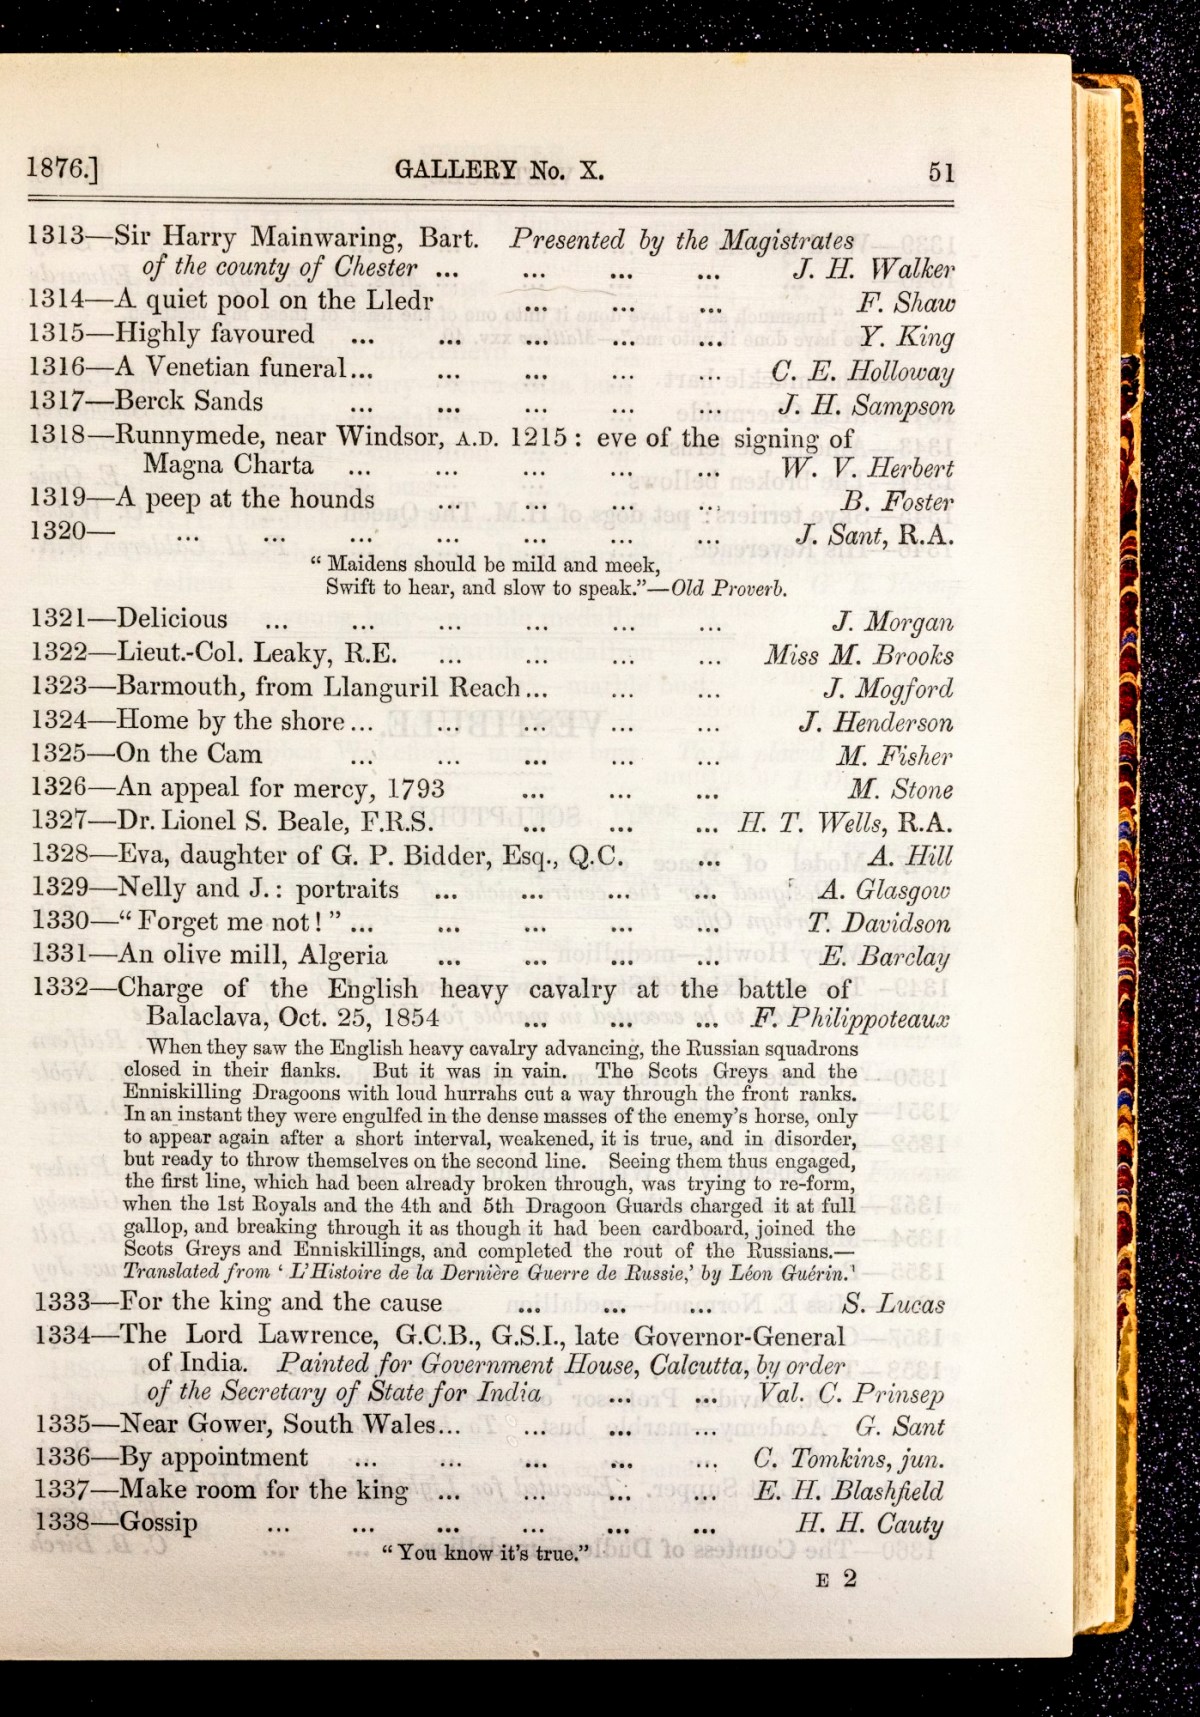 1876.] GALLERY No. X. 51
1313—Sir Harry Mainwaring, Bart. Presented by the Magistrates
of the county of Chester ... ... ... ... J. H. Walker
1314—A quiet pool on the Lledr ... ... ... F. Shaw
1315—Highly favoured ... ... ... ... ... Y. King
1316—A Venetian funeral... ... ... ... ... C. E. Holloway
1317—Berck Sands ... ... ... ... ... J. H. Sampson
1318—Runnymede, near Windsor, A.D. 1215: eve of the signing of
Magna Charta ... ... ... ... ... W. V. Herbert
1319—A peep at the hounds ... ... ... ... B. Foster
1320— ... ... ... ... ... ... ... J. Sant, R.A.
“Maidens should be mild and meek,
Swift to hear, and slow to speak.”—Old Proverb.
1321—Delicious ... ... ... ... ... ... J. Morgan
1322—Lieut.-Col. Leaky, R.E. ... ... ... ... Miss M. Brooks
1323—Barmouth, from Llanguril Reach... ... ... J. Mogford
1324—Home by the shore... ... ... ... ... J. Henderson
1325—On the Cam ... ... ... ... ... M. Fisher
1326—An appeal for mercy, 1793 ... ... ... M. Stone
1327—Dr. Lionel S. Beale, F.R.S. ... ... ... H. T. Wells, R.A.
1328—Eva, daughter of G. P. Bidder, Esq., Q.C. ... A. Hill
1329—Nelly and J.: portraits ... ... ... ... A. Glasgow
1330—“Forget me not!” ... ... ... ... ... T. Davidson
1331—An olive mill, Algeria ... ... ... ... E. Barclay
1332—Charge of the English heavy cavalry at the battle of
Balaclava, Oct. 25, 1854 ... ... ... F. Philippoteaux
When they saw the English heavy cavalry advancing, the Russian squadrons
closed in their flanks. But it was in vain. The Scots Greys and the
Enniskilling Dragoons with loud hurrahs cut a way through the front ranks.
In an instant they were engulfed in the dense masses of the enemy's horse, only
to appear again after a short interval, weakened, it is true, and in disorder,
but ready to throw themselves on the second line. Seeing them thus engaged,
the first line, which had been already broken through, was trying to re-form,
when the 1st Royals and the 4th and 5th Dragoon Guards charged it at full
gallop, and breaking through it as though it had been cardboard, joined the
Scots Greys and Enniskillings, and completed the rout of the Russians.—
Translated from ‘L'Histoire de la Dernière Guerre de Russie,’ by Léon Guérin.'
1333—For the king and the cause ... ... ... S. Lucas
1334—The Lord Lawrence, G.C.B., G.S.I., late Governor-General
of India. Painted for Government House, Calcutta, by order
of the Secretary of State for India ... ... Val. C. Prinsep
1335—Near Gower, South Wales... ... ... ... G. Sant
1336—By appointment ... ... ... ... ... C. Tomkins, jun.
1337—Make room for the king ... ... ... ... E. H. Blashfield
1338—Gossip ... ... ... ... ... ... H. H. Cauty
“You know it's true.”
E 2